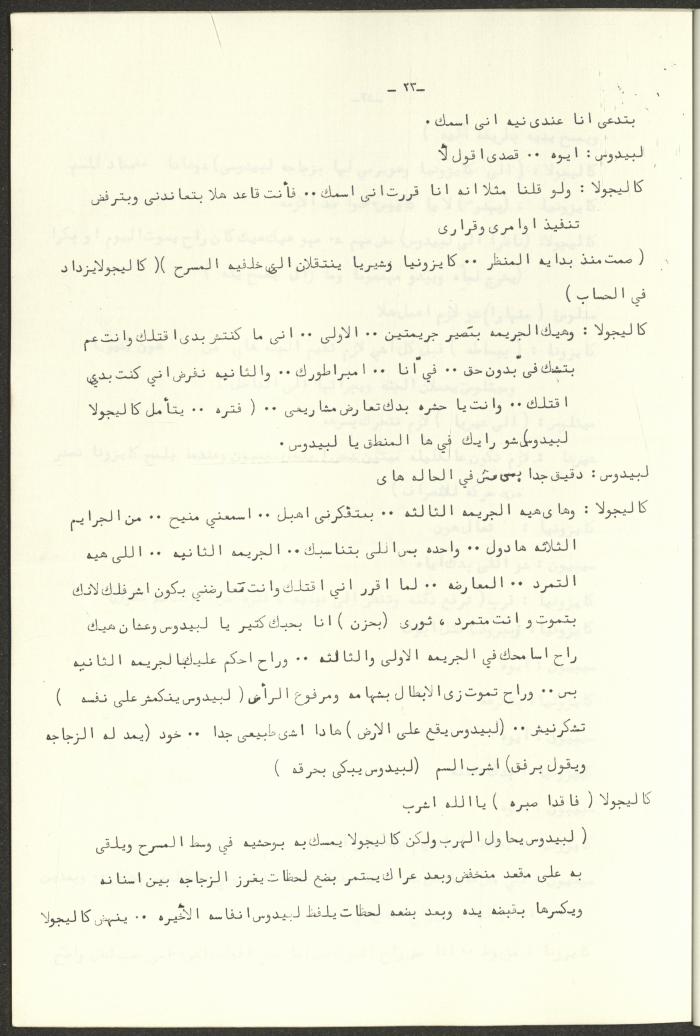 ـ٢٣ ـ
بتدعى انا عندى نيه انى اسمك .
لبيدوس : ايوه .. قصدى اقول لأ
كاليجولا : ولو قلنا مثلا انه انا قررت انى اسمك .. فأنت قاعد هلا بتعاندنى وبترفض
تنفيذ اوامرى وقرارى
( صمت منذ بدايه المنظر .. كايزونيا وشيريا ينتقلان الى خلفيه المسرح )( كاليجولا يزداد
فى الحساب )
كاليجولا : وهيك الجريمه بتصير جريمتين .. الاولى .. انى ما كنتش بدى اقتلك وانت عم
بتشك فىّ بدون حق .. فىّ أنا .. امبراطورك .. والثانيه نفرض انى كنت بدى
اقتلك .. وانت يا حشره بدك تعارض مشاريعى .. ( فتره .. يتأمل كاليجولا
لبيدوس) شو رايك فى ها المنطق يا لبيدوس .
لبيدوس : دقيق جدا بس مش في الحاله هاى
كاليجولا : وهاى هيه الجريمه الثالثه .. بمتفكرنى اهبل .. اسمعني منيح .. من الجرايم
الثلاثه هادول .. واحده بس اللى بتناسبك .. الجريمه الثانيه .. اللى هيه
التمرد .. المعارضه .. لما اقرر اني اقتلك وانت تعارضني بكون اشرفلك لانك
بتموت وانت متمرد ، ثورى (بحزن ) انا بحبك كتير يا لبيدوس وعشان هيك
راح اسامحك في الجريمه الاولى والثالثه .. وراح احكم عليك بالجريمه الثانيه
بس .. وراح تموت زى الابطال بشهامه ومرفوع الرأس ( لبيدوس ينكمش على نفسه )
تشكرنيش .. (لبيدوس يقع على الارض ) هادا اشى طبيعى جدا .. خود (يمد له الزجاجه
ويقول برفق) اشرب السم (لبيدوس يبكى بحرقه )
كاليجولا ( فاقدا صبره ) ياالله اشرب
( لبيدوس يحاول الهرب ولكن كاليجولا يمسك به بوحشيه في وسط المسرح ويلقى
به على مقعد منخفض وبعد عراك يستمر بضع لحظات يغرز الزجاجه بين اسنانه
ويكسرها بقبضه يده وبعد بضعه لحظات يلفظ لبيدوس انفاسه الأخيره .. ينهض كاليجولا